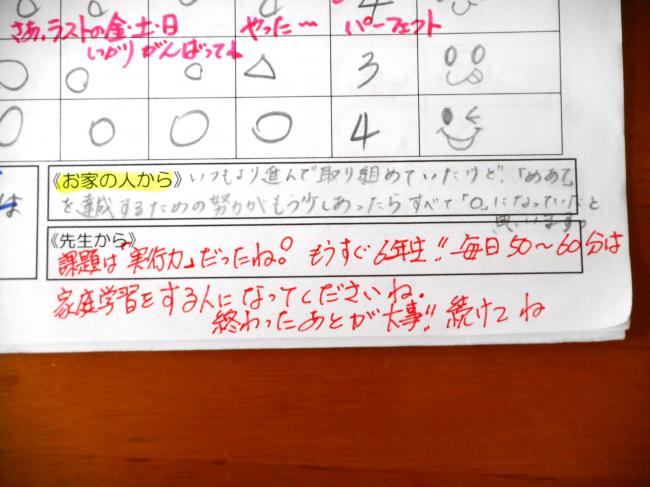 さあ、ラストの金・土・日
やった〜 パーフェクト
しっかりがんばってね
○ ○ ○ △ 3
○ ○ ○ ○ 4
は
《お家の人から》いつもより進んで取り組めていたけど、「めあて」
を達成するための努力がもう少しあったらすべて「○」になっていたと
思います。
《先生から》
課題は「実行力」だったね。 もうすぐ6年生!! 毎日50〜60分は
家庭学習をする人になってくださいね。
終わったあとが大事!! 続けてね